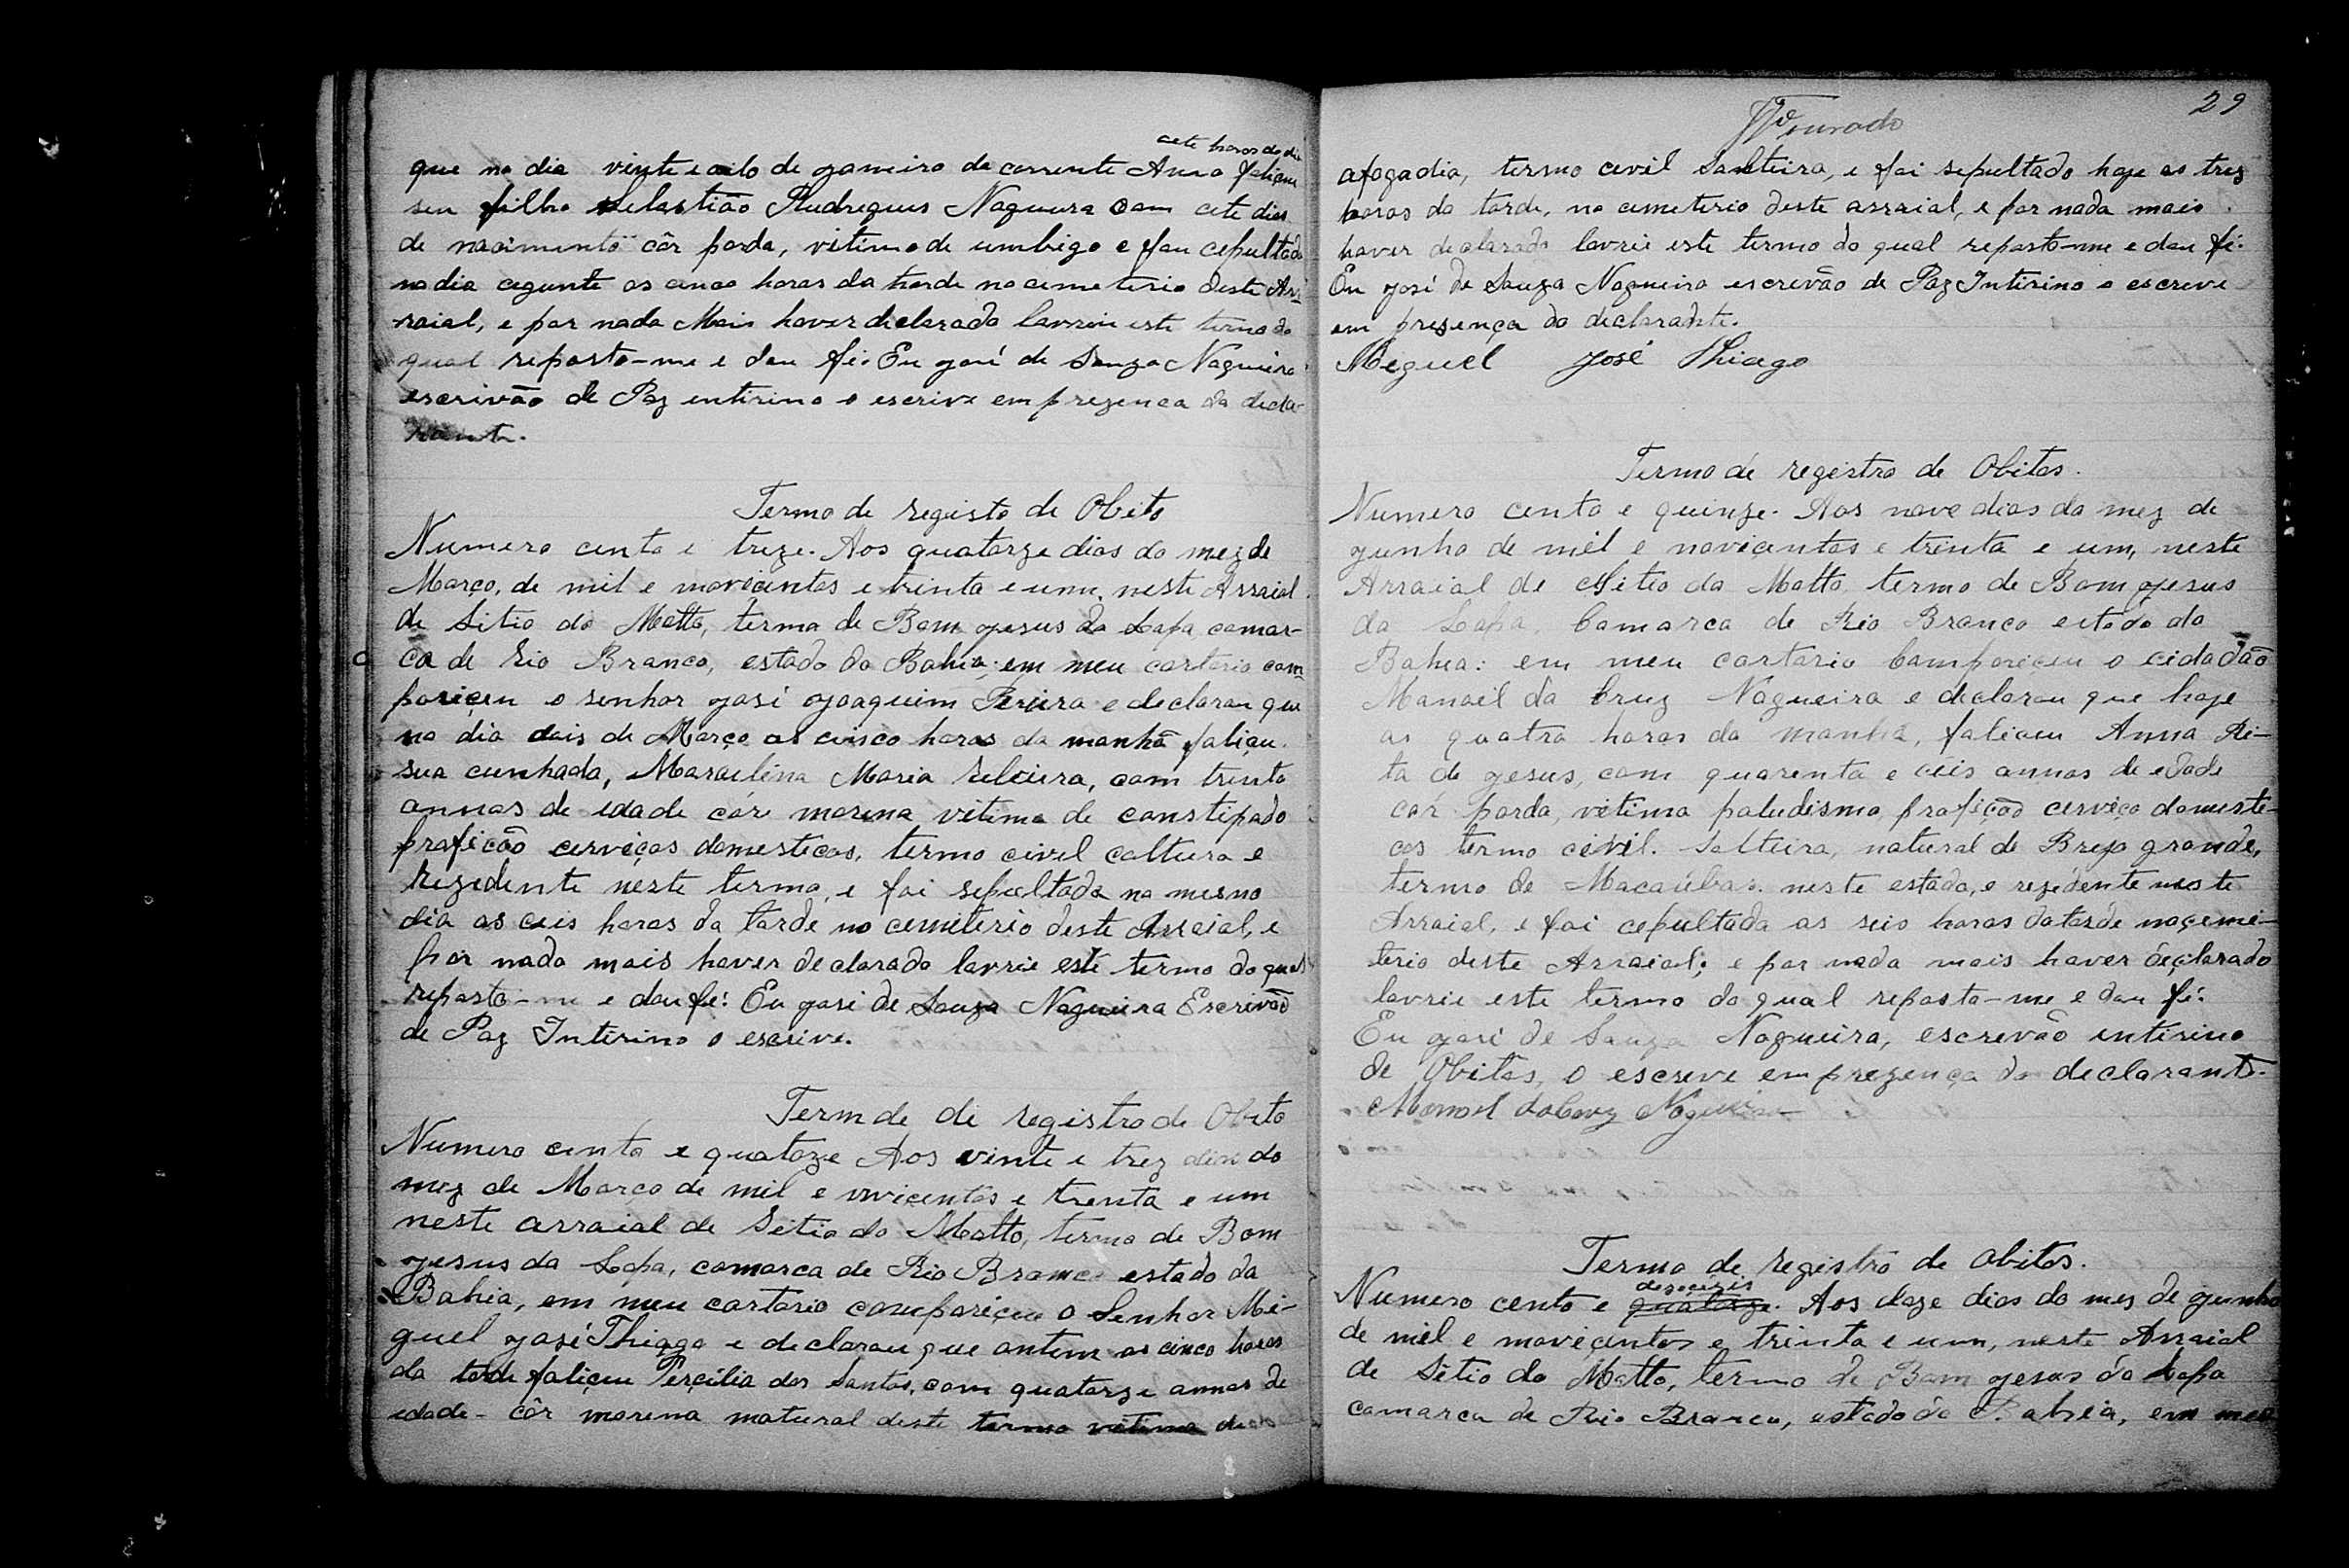 cete horas do dia
que no dia vinte e oito de janeiro do corrente Anno faliceu
seu filho Sebastião Rudregues Nogueira com cete dias
de nacimento côr parda, vitima de umbigo e fou cepultado
no dia cegunte as cinco horas da tarde no cemeterio deste Ar-
raial, e por nada Mais haver declarado lavreu este termo do
qual reporto-me e dou fé. Eu José de Souza Nogueira
escrivão de Paz entirino o escrive em prezenca da decla-
rante.
Termo de registo de Obito
Numero cento e treze. Aos quatorze dias do mez de
Março, de mil e novicentos e trinta e um, neste Arraial
de Sitio do Matto, termo de Bom Jesus da Lapa comar-
ca de Rio Branco, estado da Bahia; em meu cartorio com-
pariçeu o senhor José Joaquim Pereira e declarou que
no dia dois de Março as cinco horas da manhã faliçeu
sua cunhada, Marculina Maria, com trinta
annos de idade côr morena vitima de constipado
profição cerviços domesticos, termo civil coltura e
rezedente neste termo, e foi sepultada no mesmo
dia as ceis horas da tarde no cemiterio deste Arraial, e
por nada mais haver declarado lavrie este termo do qual
reporto-me e dou fé: Eu José de Souza Nogueira Escrivão
de Paz Intirino o escrive.
Termde de registro de Obito
Numero cento e quatoze Aos vinte e trez dias do
mez de Marco de mil e nvicentos e trenta e um
neste arraial de Sitio do Matto, termo de Bom
Jesus da Lapa, comarca de Rio Branco estado da
Bahia, em meu cartorio compariçeu o Senhor Mi-
guel José Thiago e declarou que ontem as cinco horas
da tarde faliçeu Perçilia dos Santos, com quatorze annos de
edade - côr morena natural deste termo vitima de
29
afogadia, termo cevil Salteira, e foi sepultado hoje as trez
horas da tarde, no cemeterio deste arraial, e por nada mais
haver declarado lavrie este termo do qual reporto-me e dou fé.
Eu José de Souza Nogueira escrevão de Paz Intirino o escreve
em prezença do declarante.
Meguel José Thiago
Termo de registro de Obitos.
Numero cento e quinze. Aos nove dias do mez de
junho de mil e novicentos e trinta e um, neste
Arraial de Sitio do Matto, termo de Bom Jesus
da Lapa, Comarca de Rio Branco estado da
Bahia: em meu cartorio Compariçeu o cidadão
Manoel da Cruz Nogueira e declarou que hoje
as quatro horas da manhã, faliceu Anna Ri-
ta de Jesus, com quarenta e ceis annos de edade
côr parda, vitima paludismo, profição cerviço domeste-
cos termo civil. Salteira, natural de Brejo grande,
termo de Macaúbas neste estado, e rezedente neste
Arraial, e foi cepultada as seis horas da tarde no çeme-
terio deste Arraial; e por nada mais haver deçlarado
lavrie este termo do qual reposto-me e dou fé.
Eu José de Souza Nogueira, escrevão entirino
de Obitos, o escreve em prezença do declarante.
Manoel da Cruz Nogueira
Termo de registro de obitos.
dezoçeizis
Numero cento e quatorze. Aos doze dias do mez de junho
de mil e noviçentos e trinta e um, neste Arraial
de Sitio do Matto, termo de Bom Jesus da Lapa
comarca de Rio Branco, estado da Bahia, em meu